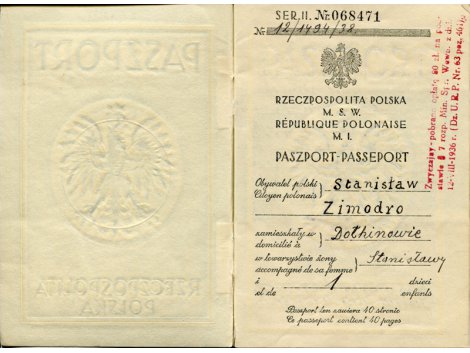 SER. II. № 068471
№ 12/1494/38.
RZECZPOSPOLITA POLSKA
M. S. W.
RÉPUBLIQUE POLONAISE
M. I.
PASZPORT-PASSEPORT
Obywatel polski } Stanisław
Citoyen polonais
Zimodro
zamieszkały w } Dołhinowie
domicilié à
w towarzystwie żony } Stanisławy
accompagné de sa femme
i } 1 dzieci
et de enfants
Paszport ten zawiera 40 stronic
Ce passeport contient 40 pages
Zwyczajny - pobrano opłatę 80 zł. na pod-
stawie § 7 rozp. Min. Spr. Wewn. z dn.
12-VIII-1936 r. (Dz. U. R. P. Nr. 63 poz.
PASZPORT
RZECZPOSPOLITA
POLSKA